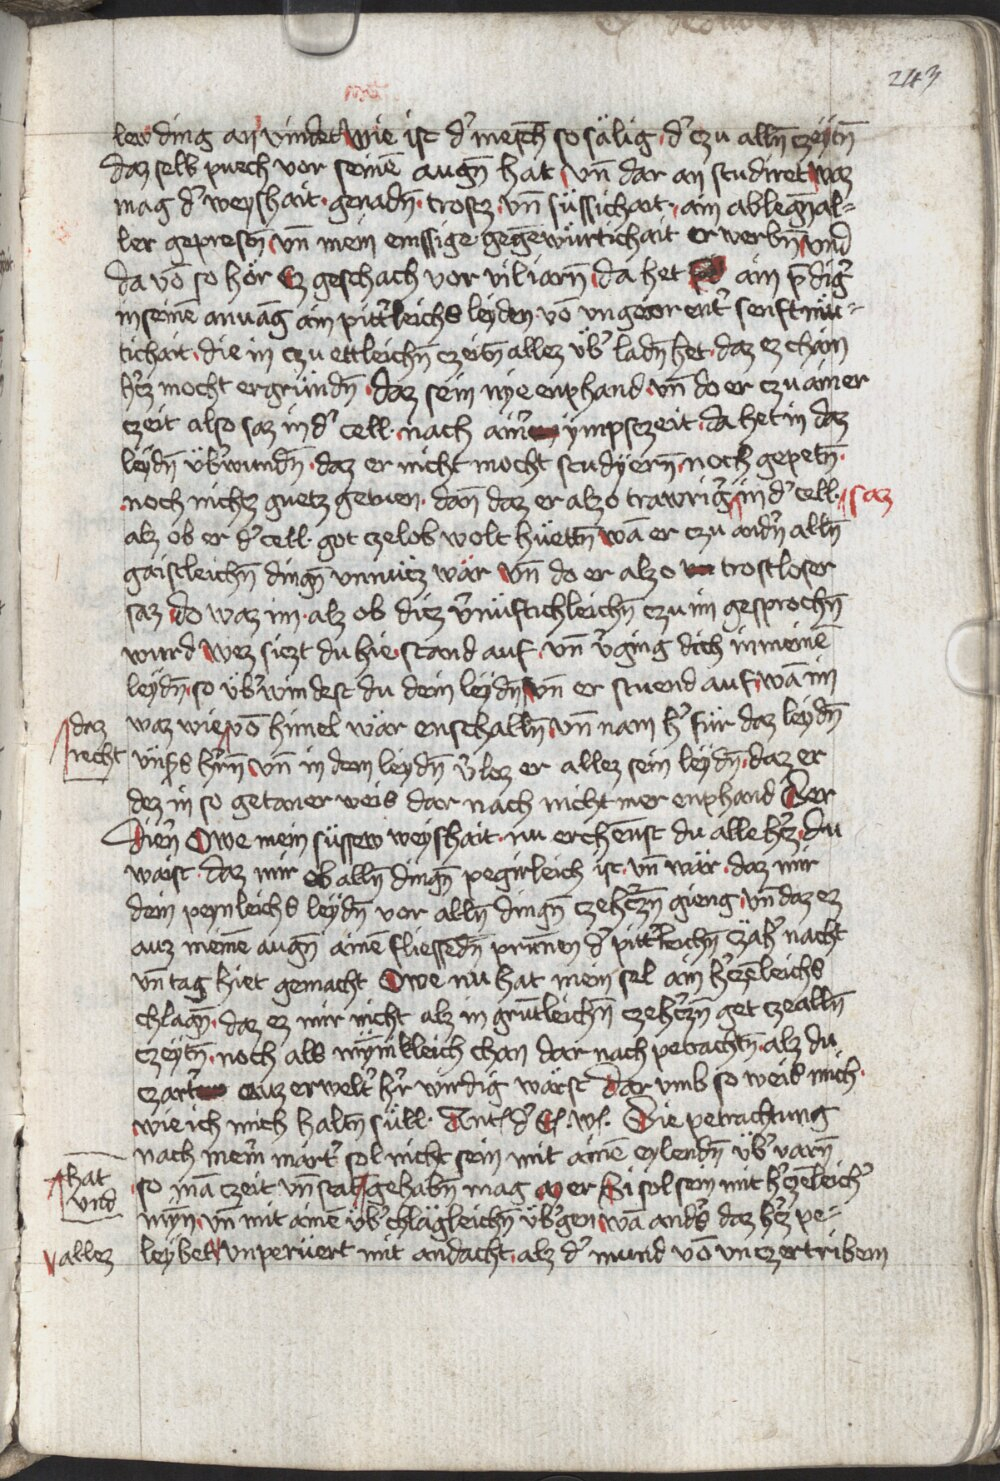 243
lew ding an vindet wie ist d' mensch so sälig · d' czu alln̄ czeytn̄
daz selb puech vor seinē augn̄ hat vn̄ dar an studiret waz
mag d' weyshait · genadn̄ · trostz · vn̄ süssichait · ain ablegn̄ al=
ler gepresn̄ vn̄ mein emssige gegēwürtichait erwerbn̄ vnd
da vō so hör Ez geschach vor vil iarn̄ da het ain p̄dig'
in seinē anuāg ain pitt'leichs leyden vō vngeorent' senftmü=
tichait · die in czu ettleichn̄ czeitn̄ allez üb' ladn̄ het · daz ez chain
h'cz mocht ergründn̄ · daz sein nye enphand · vn̄ do er czu ainer
czeit also saz in d' cell · nach ain' ympsczeit · da het in daz
leydn̄ üb'wundn̄ · daz er nicht mocht studyern̄ · noch gepetn̄ ·
noch nichtz guetz getuen · dan̄ daz er alzo trawrig' in d' cell · saz
alz ob er d' cell · got czelob wolt hüettn̄ wā er czu andn̄ alln̄
gaistleichn̄ dingn̄ vnnücz wär vn̄ do er alzo trostloser
saz do waz im · alz ob diez v'nüftichleichn̄ czu im gesprochn̄
wurd wez siczt du hie · stand auf · vn̄ v'ging dich in meinē
leydn̄ · so üb'windest du dein leydn̄ vn̄ er stuend auf wā im
daz waz wie vō himel wär enschalln̄ vn̄ nam h' für daz leydn̄
recht vnsers h'rn̄ vn̄ in dem leydn̄ v'loz er allez sein leydn̄ · daz er
dez in so getaner weis dar nach nicht mer enphand Der
Dien' Owe mein süssew weyshait · nu erchēnst du alle h'cz · du
waist · daz mir ob alln̄ dingn̄ pegirleich ist · vn̄ wär · daz mir
dein peynleichs leydn̄ vor alln̄ dingn̄ czeh'czn̄ gieng vn̄ daz ez
auz meinē augn̄ ainē fliessēdn̄ prūnen d' pitt'leichn̄ czäh' nacht
vn̄ tag hiet gemacht Owe nu hat mein sel ain h'czēleichs
chlagn̄ · daz ez mir nicht alz in grūtleichn̄ czeh'czn̄ get cze alln̄
czeytn̄ · noch alls mÿnikleich chan dar nach petrachtn̄ · alz du
czart' auz erwelt' h'r wirdig wärst dar vmb so weis mich ·
wie ich mich haltn̄ süll · Ant d' E. w. Die petrachtung
nach mein' mart' sol nicht sein mit ainē eylendn̄ üb' varn̄
hat so mā czeit vn̄ stat gehabn̄ mag er Si sol sein mit h'czēleich'
vnd mȳn vn̄ mit ainē üb' chlägleichn̄ üb'gen wā anders daz h'cz pe=
allez leybet vnperüert mit andacht · alz d' mund vō vnczertribem